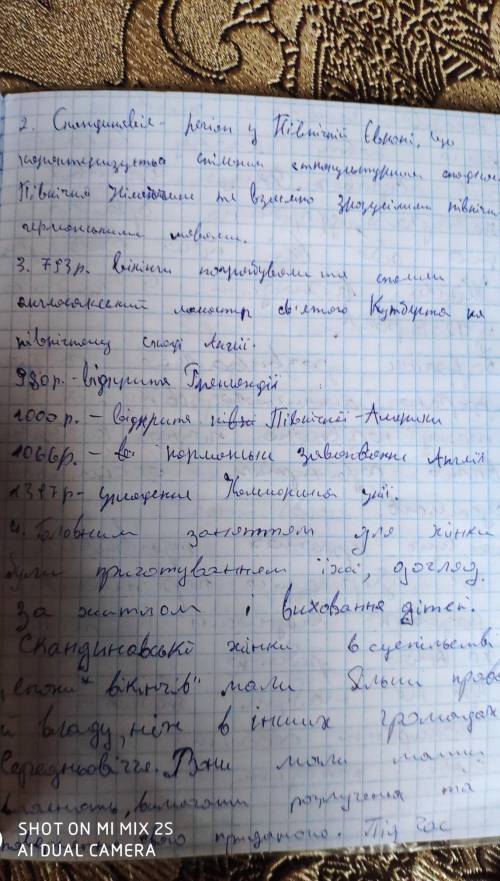 2. Скандинавія - регіон у Північній Європі, що
характеризується спільним етнокультурним
Північна та взаємно зрозумілими
германськими мовами.
3. 793р. Вікінги пограбували та спалили
англосаксонський монастир св'ятого Кутберта на
північному сході Англії.
980р. - відкриття Гренландії
1000 р. - відкриття Північної - Америки
1066р. - норманське завоювання Англії
1397р - укладення Кальмарська унії.
4. Головним заняттям для жінки
були приготуванням їжі, догляд
за житлом і виховання дітей.
Скандинавські жінки в суспільстві
"епохи вікінгів" мали більш права
й владу, ніж в інших громадах
Середньовіччя. Вони мали
власність, вимагати розлучення та
приданого. Під час
SHOT ON MI MIX 2S
AI DUAL CAMERA